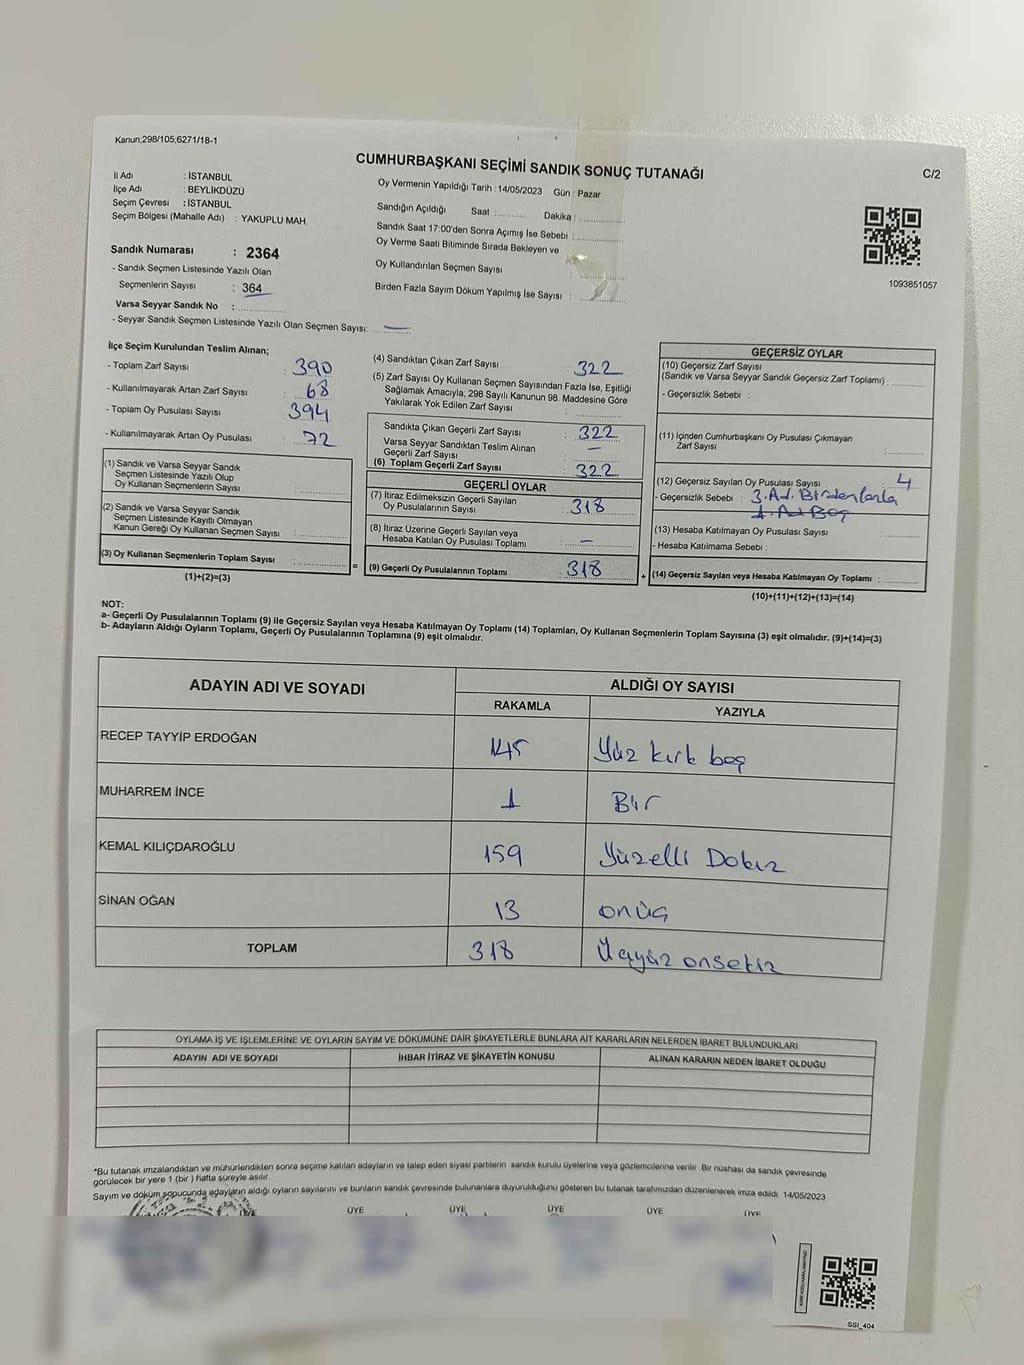 Kanun;298/105;6271/18-1
CUMHURBAŞKANI SEÇİMİ SANDIK SONUÇ TUTANAĞI
C/2
İl Adı : İSTANBUL
İlçe Adı : BEYLİKDÜZÜ
Seçim Çevresi : İSTANBUL
Seçim Bölgesi (Mahalle Adı) : YAKUPLU MAH.
Sandık Numarası : 2364
- Sandık Seçmen Listesinde Yazılı Olan
Seçmenlerin Sayısı : 364
Varsa Seyyar Sandık No :
- Seyyar Sandık Seçmen Listesinde Yazılı Olan Seçmen Sayısı: —
Oy Vermenin Yapıldığı Tarih : 14/05/2023 Gün : Pazar
Sandığın Açıldığı Saat : Dakika :
Sandık Saat 17:00'den Sonra Açımış İse Sebebi :
Oy Verme Saati Bitiminde Sırada Bekleyen ve
Oy Kullandırılan Seçmen Sayısı :
Birden Fazla Sayım Döküm Yapılmış İse Sayısı :
1093851057
İlçe Seçim Kurulundan Teslim Alınan;
- Toplam Zarf Sayısı : 390
- Kullanılmayarak Artan Zarf Sayısı : 68
- Toplam Oy Pusulası Sayısı : 394
- Kullanılmayarak Artan Oy Pusulası : 72
(1) Sandık ve Varsa Seyyar Sandık
Seçmen Listesinde Yazılı Olup
Oy Kullanan Seçmenlerin Sayısı :
(2) Sandık ve Varsa Seyyar Sandık
Seçmen Listesinde Kayıtlı Olmayan
Kanun Gereği Oy Kullanan Seçmen Sayısı :
(3) Oy Kullanan Seçmenlerin Toplam Sayısı :
(1)+(2)=(3)
(4) Sandıktan Çıkan Zarf Sayısı : 322
(5) Zarf Sayısı Oy Kullanan Seçmen Sayısından Fazla İse, Eşitliği
Sağlamak Amacıyla, 298 Sayılı Kanunun 98. Maddesine Göre
Yakılarak Yok Edilen Zarf Sayısı :
Sandıkta Çıkan Geçerli Zarf Sayısı : 322
Varsa Seyyar Sandıktan Teslim Alınan
Geçerli Zarf Sayısı : —
(6) Toplam Geçerli Zarf Sayısı : 322
GEÇERLİ OYLAR
(7) İtiraz Edilmeksizin Geçerli Sayılan
Oy Pusulalarının Sayısı : 318
(8) İtiraz Üzerine Geçerli Sayılan veya
Hesaba Katılan Oy Pusulası Toplamı : —
= (9) Geçerli Oy Pusulalarının Toplamı : 318 +
GEÇERSİZ OYLAR
(10) Geçersiz Zarf Sayısı
(Sandık ve Varsa Seyyar Sandık Geçersiz Zarf Toplamı) :
- Geçersizlik Sebebi :
(11) İçinden Cumhurbaşkanı Oy Pusulası Çıkmayan
Zarf Sayısı :
(12) Geçersiz Sayılan Oy Pusulası Sayısı : 4
- Geçersizlik Sebebi : 3.Ad. Birdenfazla
1.Ad Boş
(13) Hesaba Katılmayan Oy Pusulası Sayısı :
- Hesaba Katılmama Sebebi :
(14) Geçersiz Sayılan veya Hesaba Katılmayan Oy Toplamı :
(10)+(11)+(12)+(13)=(14)
NOT:
a- Geçerli Oy Pusulalarının Toplamı (9) ile Geçersiz Sayılan veya Hesaba Katılmayan Oy Toplamı (14) Toplamları, Oy Kullanan Seçmenlerin Toplam Sayısına (3) eşit olmalıdır. (9)+(14)=(3)
b- Adayların Aldığı Oyların Toplamı, Geçerli Oy Pusulalarının Toplamına (9) eşit olmalıdır.
ADAYIN ADI VE SOYADI
ALDIĞI OY SAYISI
RAKAMLA YAZIYLA
RECEP TAYYİP ERDOĞAN 145 Yüz kırk beş
MUHARREM İNCE 1 Bir
KEMAL KILIÇDAROĞLU 159 Yüzelli Dokuz
SİNAN OĞAN 13 onüç
TOPLAM 318 Üçyüz onsekiz
OYLAMA İŞ VE İŞLEMLERİNE VE OYLARIN SAYIM VE DÖKÜMÜNE DAİR ŞİKAYETLERLE BUNLARA AİT KARARLARIN NELERDEN İBARET BULUNDUKLARI
ADAYIN ADI VE SOYADI İHBAR İTİRAZ VE ŞİKAYETİN KONUSU ALINAN KARARIN NEDEN İBARET OLDUĞU
*Bu tutanak imzalandıktan ve mühürlendikten sonra seçime katılan adayların ve talep eden siyasi partilerin sandık kurulu üyelerine veya gözlemcilerine verilir. Bir nüshası da sandık çevresinde
görülecek bir yere 1 (bir ) hafta süreyle asılır.
Sayım ve döküm sonucunda adayların aldığı oyların sayılarını ve bunların sandık çevresinde bulunanlara duyurulduğunu gösteren bu tutanak tarafımızdan düzenlenerek imza edildi. 14/05/2023
ÜYE ÜYE ÜYE ÜYE ÜYE
SSI_404